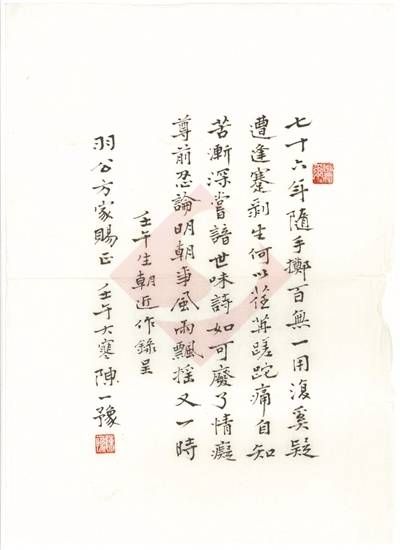 七十六年隨手擲百無一用復奚疑
遭逢蹇剝生何以荏苒蹉跎痛自知
苦漸深嘗諳世味詩如可廢了情癡
尊前忍論明朝事風雨飄搖又一時
壬午生朝近作錄呈
羽公方家賜正 壬午大寒陳一豫